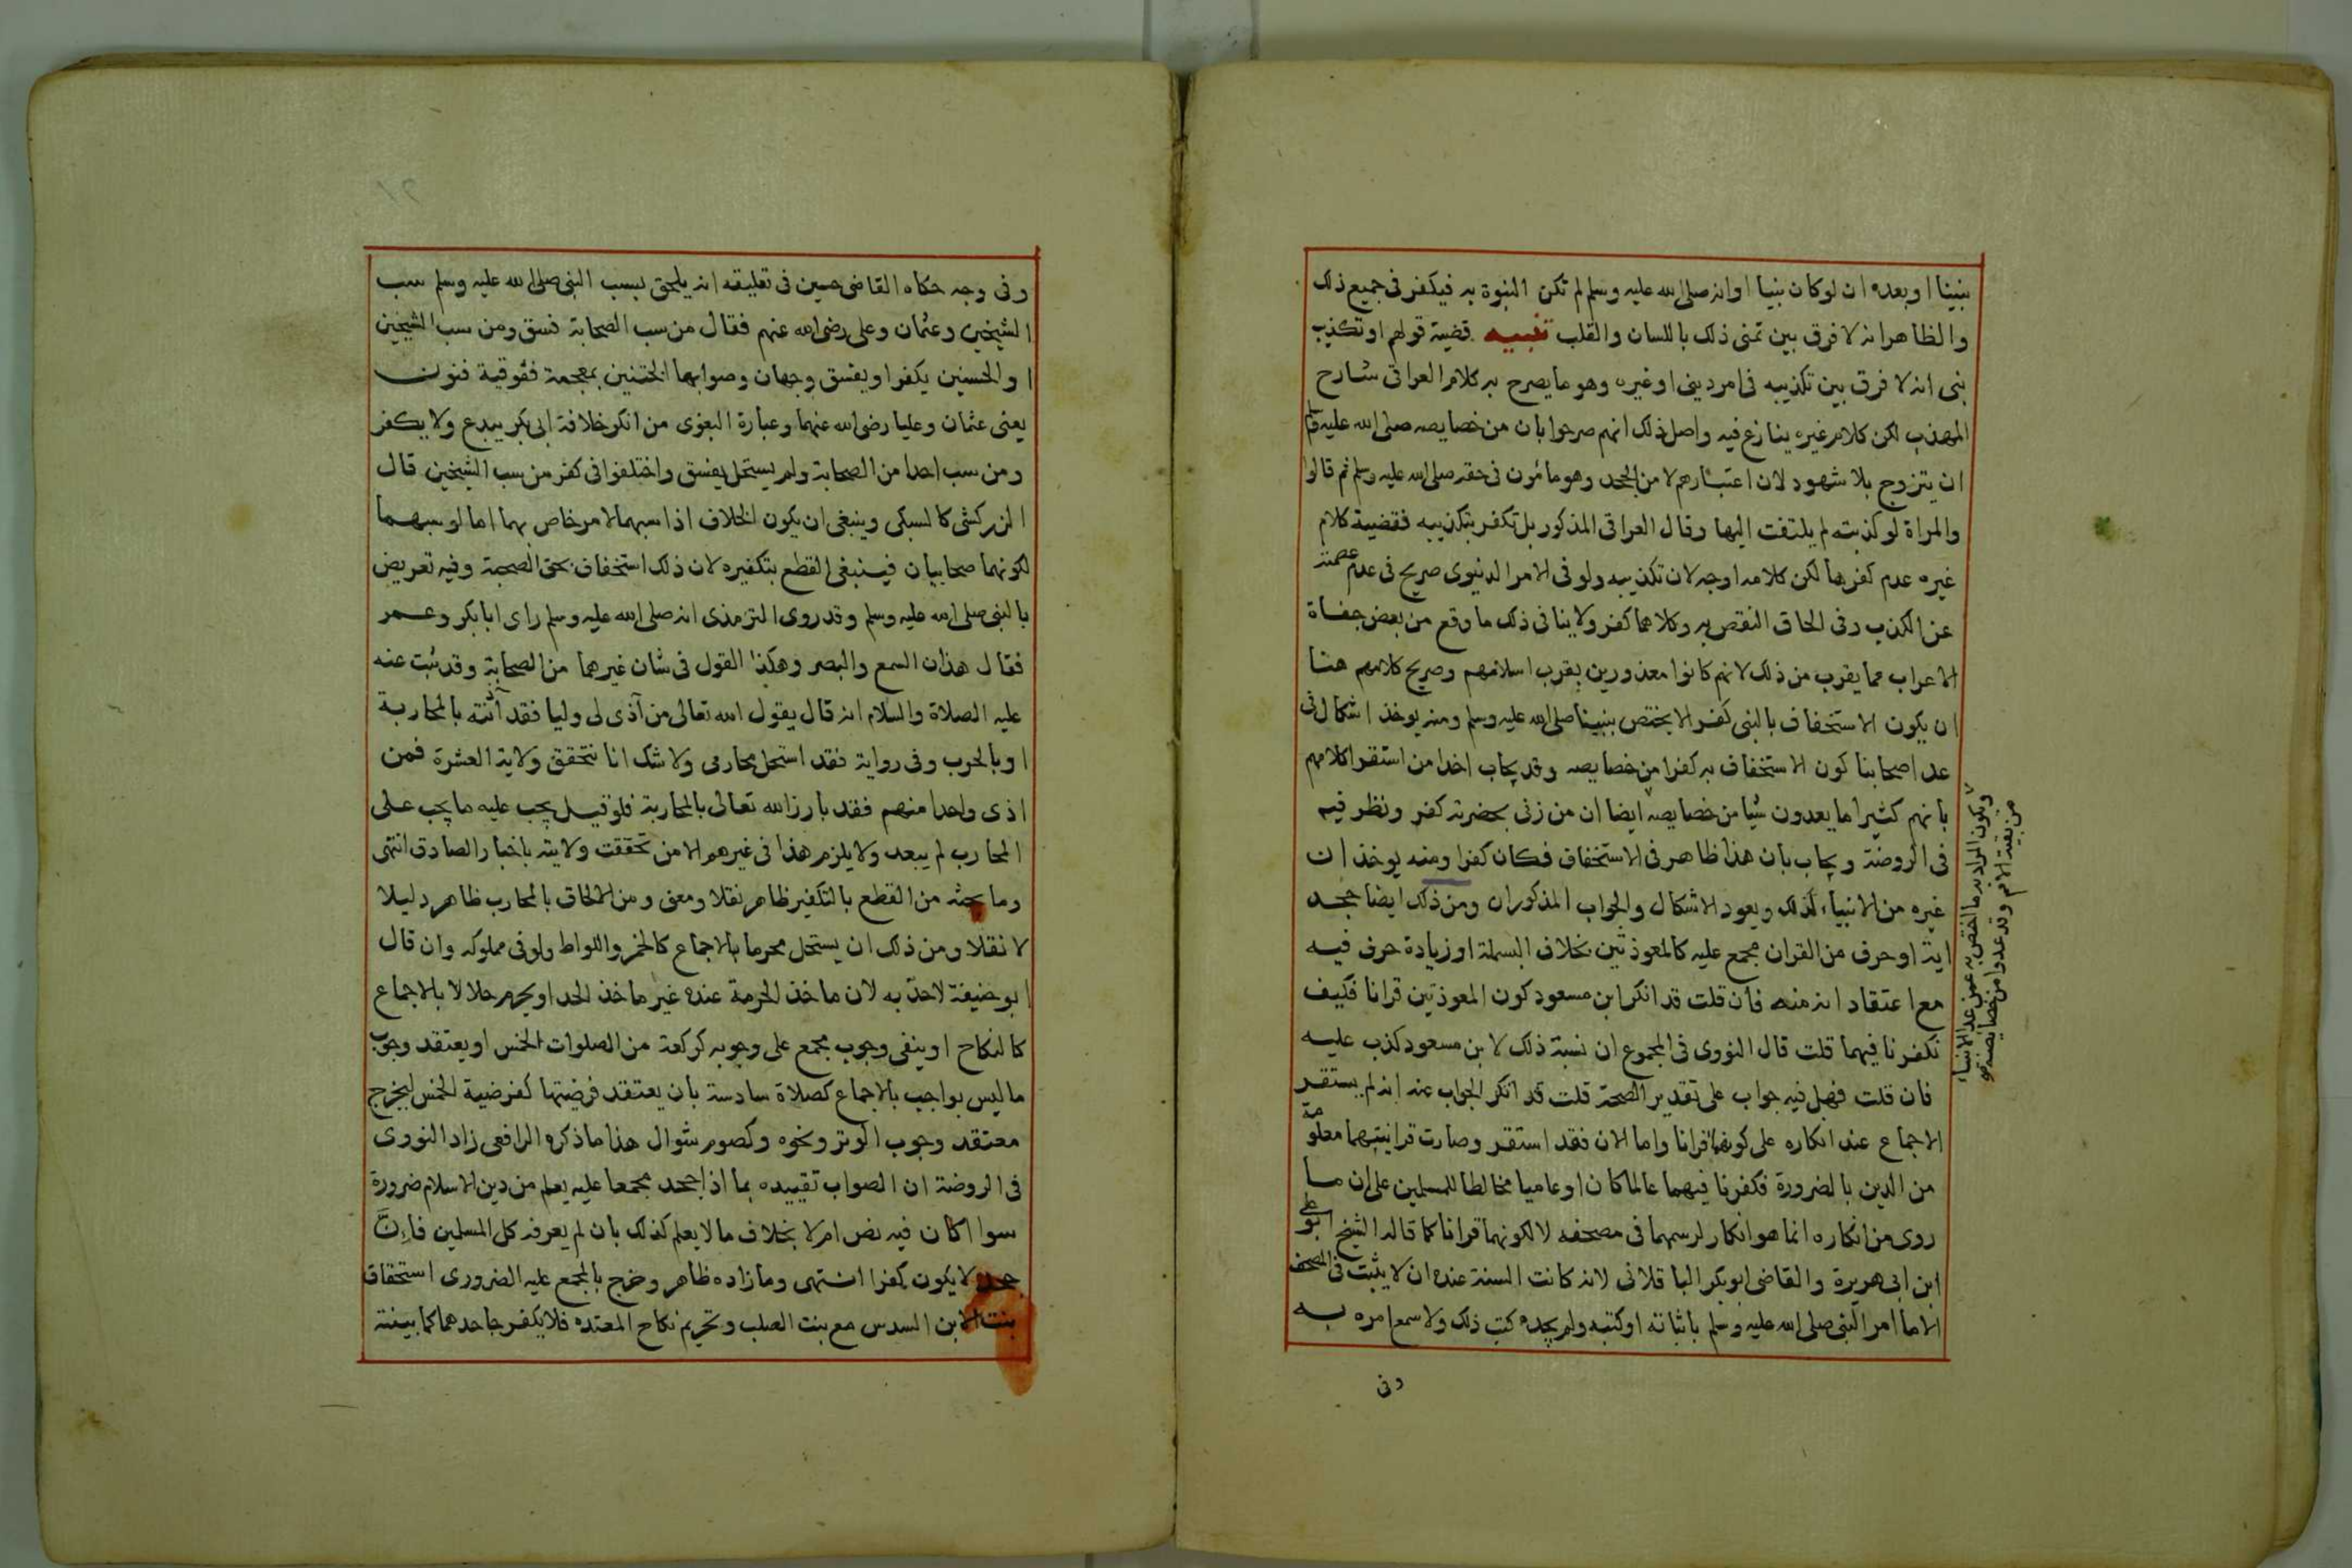 نبينا او بعده ان لو كان نبيا او انه صلى الله عليه وسلم لم تكن النبوة به فيكفر فى جميع ذلك
والظاهر انه لا فرق بين تمنى ذلك باللسان والقلب تنبيه قضية قولهم او تكذيب
نبى انه لا فرق بين تكذيبه فى امر دينى او غيره وهو ما يصرح به كلام العراقى شارح
المهذب لكن كلام غيره ينازع فيه واصل ذلك انهم صرحوا بان من خصايصه صلى الله عليه وسلم
ان يتزوج بلا شهود لان اعتبارهم لا من الجحد وهو مأمون فى حقه صلى الله عليه وسلم ثم قالوا
والمراة لو كذبته لم يلتفت اليها وقال العراقى المذكور بل تكفر بتكذيبه فقضية كلام
غيره عدم كفرها لكن كلامه اوجه لان تكذيبه ولو فى الامر الدنيوى صريح فى عدم عصمته
عن الكذب وفى الحاق النقص به وكلاهما كفر ولا ينافى ذلك ما وقع من بعض جفاة
الاعراب مما يقرب من ذلك لانهم كانوا معذورين بقرب اسلامهم وصريح كلامهم هنا
ان يكون الاستخفاف بالنبى كفر الا يختص بنبينا صلى الله عليه وسلم ومنه يوخذ اشكال فى
عد اصحابنا كون الاستخفاف به كفرا من خصايصه وقد يجاب اخدا من استقرا كلامهم
بانهم كثيرا ما يعدون شيا من خصايصه ايضا ان من زنى بحضرته كفر ونظر فيه
فى الروضة ويجاب بان هذا ظاهر فى الاستخفاف فكان كفرا ومنه يوخذ ان
غيره من الانبياء كذلك ويعود الاشكال والجواب المذكوران ومن ذلك ايضا جحد
اية او حرف من القران مجمع عليه كالمعوذتين بخلاف البسملة او زيادة حرف فيه
مع اعتقاد انه منه فان قلت قد انكر ابن مسعود كون المعوذتين قرانا فكيف
تكفرنا فيهما قلت قال النووى فى المجموع ان نسبة ذلك لابن مسعود كذب عليه
فان قلت فهل فيه جواب على تقدير الصحة قلت قد انكر الجواب عنه انه لم يستقر
الاجماع عند انكاره على كونهما قرانا واما الان فقد استقر وصارت قرانيتهما معلومة
من الدين بالضرورة فكفرنا فيهما عالما كان او عاميا مخالطا للمسلمين على ان ما
روى من انكاره انما هو انكار لرسمهما فى مصحفه لا لكونهما قرانا كما قاله الشيخ ابو على
ابن ابى هريرة والقاضى ابوبكر الباقلانى لانه كانت السنة عنده ان لا يثبت فى المصحف
الا ما امر النبى صلى الله عليه وسلم باثباته او كتبه ولم يجده كتب ذلك ولا سمع امره به
وفى
ويكون المراد به ما اختص به عمن عدا الانبياء
من بقية الامم وقد عدوا من خصايصه
وفى وجه حكاه القاضى حسين فى تعليقه انه يلحق بسب النبى صلى الله عليه وسلم سب
الشيخين وعثمان وعلى رضى الله عنهم فقال من سب الصحابة فسق ومن سب الشيخين
او الحسنين يكفر او يفسق وجهان وصوابهما الختنين بمعجمة ففوقية فنون
يعنى عثمان وعليا رضى الله عنهما وعبارة البغوى من انكر خلافة ابى بكر يبدع ولا يكفر
ومن سب احدا من الصحابة ولم يستحل يفسق واختلفوا فى كفر من سب الشيخين قال
الزركشى كالسبكى وينبغى ان يكون الخلاف اذا سبهما لامر خاص بهما اما لو سبهما
لكونهما صحابيان فينبغى القطع بتكفيره لان ذلك استخفاف بحق الصحبة وفيه تعريض
بالنبى صلى الله عليه وسلم وقد روى الترمذى انه صلى الله عليه وسلم راى ابا بكر وعمر
فقال هذان السمع والبصر وهكذا القول فى شان غيرهما من الصحابة وقد ثبت عنه
عليه الصلاة والسلام انه قال يقول الله تعالى من آذى لى وليا فقد آذنته بالمحاربة
او بالحرب وفى رواية فقد استحل محارمى ولا شك انا نتحقق ولاية العشرة فمن
اذى واحدا منهم فقد بارز الله تعالى بالمحاربة فلو قيل يجب عليه ما يجب على
المحارب لم يبعد ولا يلزم هذا فى غيرهم الا من تحققت ولايته باخبار الصادق انتهى
وما بحثه من القطع بالتكفير ظاهر نقلا ومعنى ومن الالحاق بالمحارب ظاهر دليلا
لا نقلا ومن ذلك ان يستحل محرما بالاجماع كالخمر واللواط ولو فى مملوكه وان قال
ابو حنيفة لا حد به لان ماخذ الحرمة عنده غير ماخذ الحد او يحرم حلالا بالاجماع
كالنكاح او ينفى وجوب مجمع على وجوبه كركعة من الصلوات الخمس او يعتقد وجوب
ما ليس بواجب بالاجماع كصلاة سادسة بان يعتقد فرضيتها كفرضية الخمس ليخرج
معتقد وجوب الوتر ونحوه وكصوم شوال هذا ما ذكره الرافعى زاد النووى
فى الروضة ان الصواب تقييده بما اذا جحد مجمعا عليه يعلم من دين الاسلام ضرورة
سوا اكان فيه نص ام لا بخلاف ما لا يعلم كذلك بان لم يعرفه كل المسلمين فاِنّ
جحده لا يكون كفرا انتهى وما زاده ظاهر وخرج بالمجمع عليه الضرورى استحقاق
بنت الابن السدس مع بنت الصلب وتحريم نكاح المعتده فلا يكفر جاحدهما كما بينته